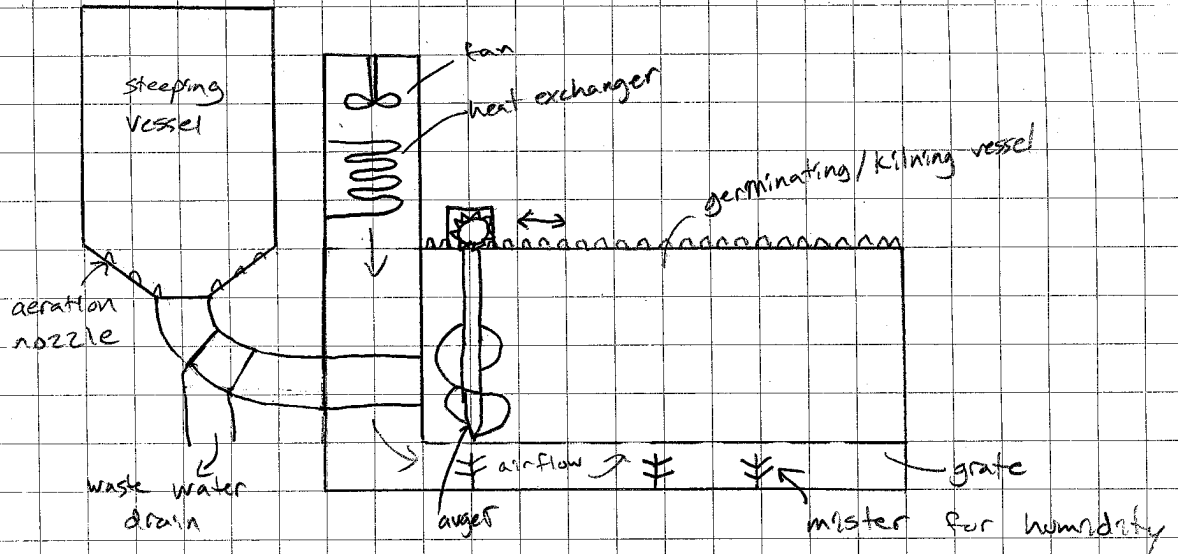 steeping
vessel
fan
heat exchanger
germinating/kilning vessel
aeration
nozzle
waste water
drain
airflow
auger
grate
mister for humidity